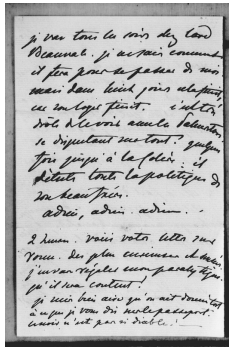 je vais tous les soirs chez Lord
Beauvale. je ne sais comment
il fera pour se passer de moi
mais dans huit jours cela finit
car son logis finit. c'est très
drôle de le voir avec les Palmerston
se disputant sur tout. quelque
fois jusqu'à la colère. il
déteste toute la politique de
son beau frère.
adieu, adieu. adieu.
2 heures. voici votre lettre
venue. des plus curieuses
j'en vais régaler mon paralytique.
qu'il sera content!
je suis bien aise qu'on ait
à ce que je vous dis sur le passeport.
n'est pas si diable!